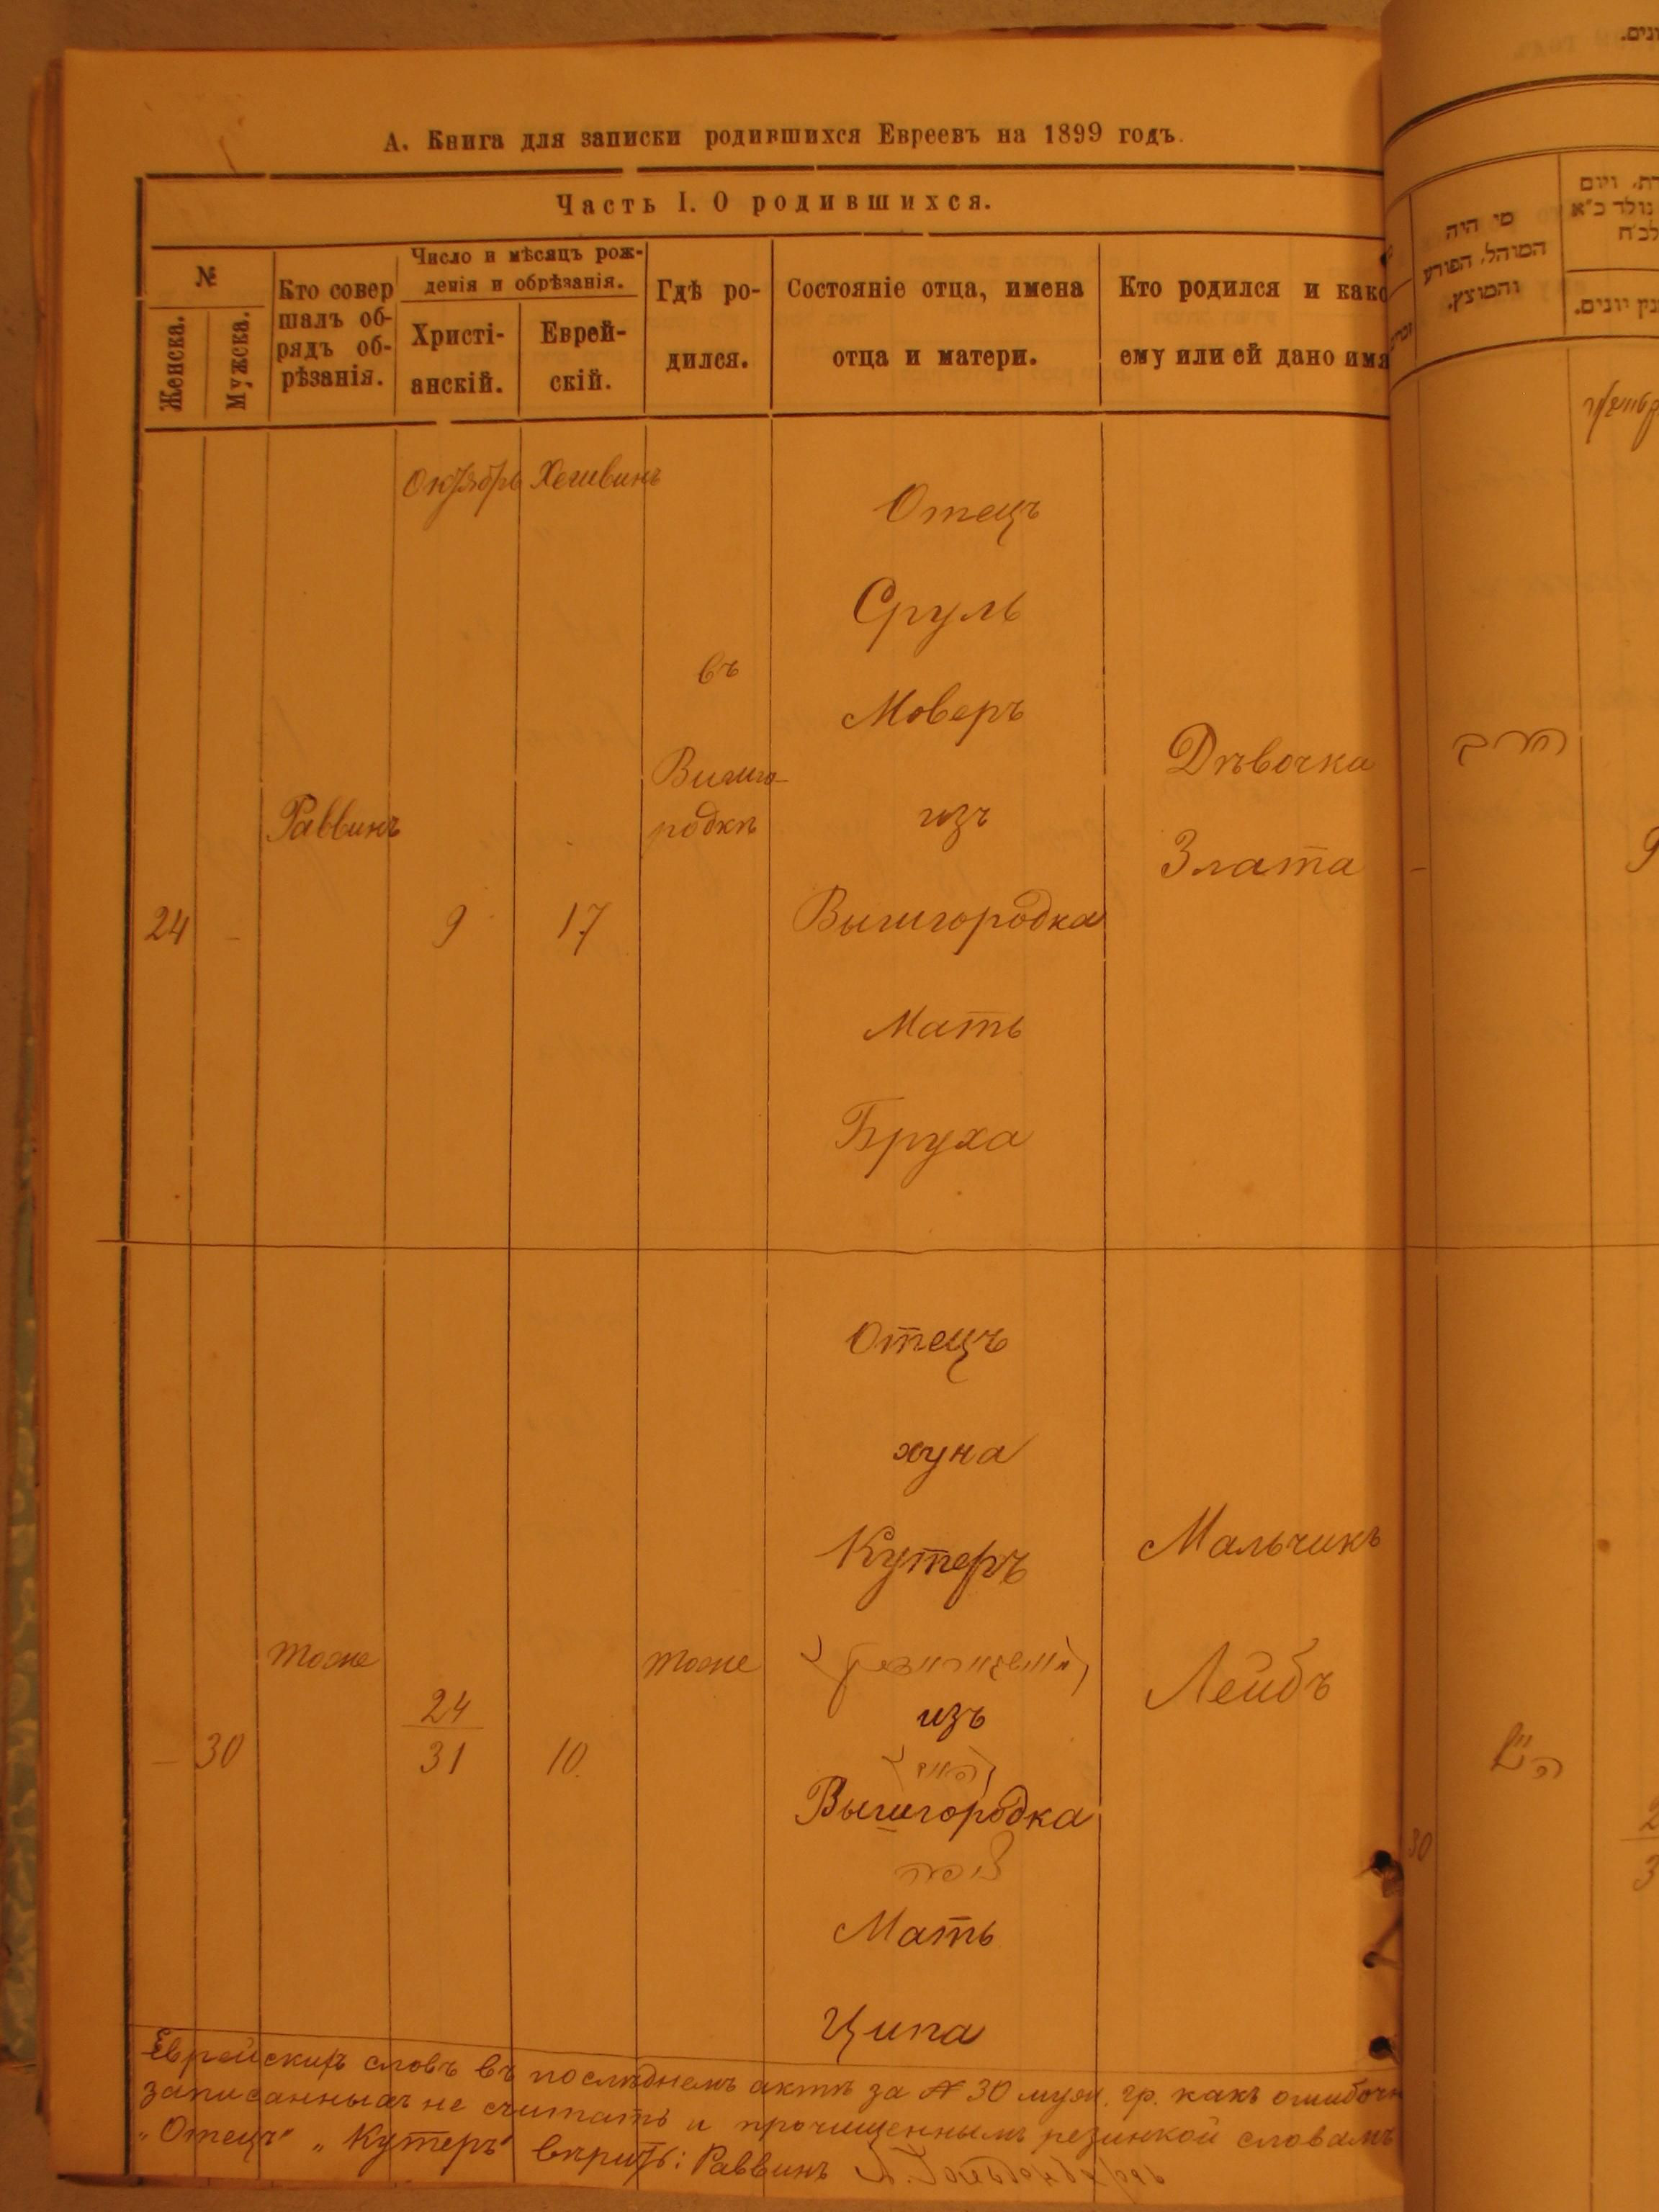 А. Книга для записки родившихся Евреевъ на 1899 годъ.
Часть I. О родившихся.
№
Женска.
Мужска.
Кто совер
шалъ об-
рядъ об-
рѣзанія.
Число и мѣсяцъ рож-
денія и обрѣзанія.
Христі-
анскій.
Еврей-
скій.
Гдѣ ро-
дился.
Состояніе отца, имена
отца и матери.
Кто родился и како
ему или ей дано имя
מי היה
המוהל, הפורע
והמוצץ.
Октябрь Хешвинъ
24 -
Раввинъ
9 17
въ
Вышго-
родкѣ
Отецъ
Сруль
Моверъ
изъ
Вышгородка
Мать
Бруха
Дѣвочка
Злата
- 30
тоже
24
31
10.
тоже
Отецъ
хуна
Кутеръ
изъ
Вышгородка
Мать
Ципа
Мальчикъ
Лейбъ
30
Еврейскихъ словъ въ послѣднемъ актѣ за № 30 муж. гр. какъ ошибочн
записанныхъ не считать и прочищеннымъ резинкой словамъ
„Отецъ" „Кутеръ" вѣрить: Раввинъ